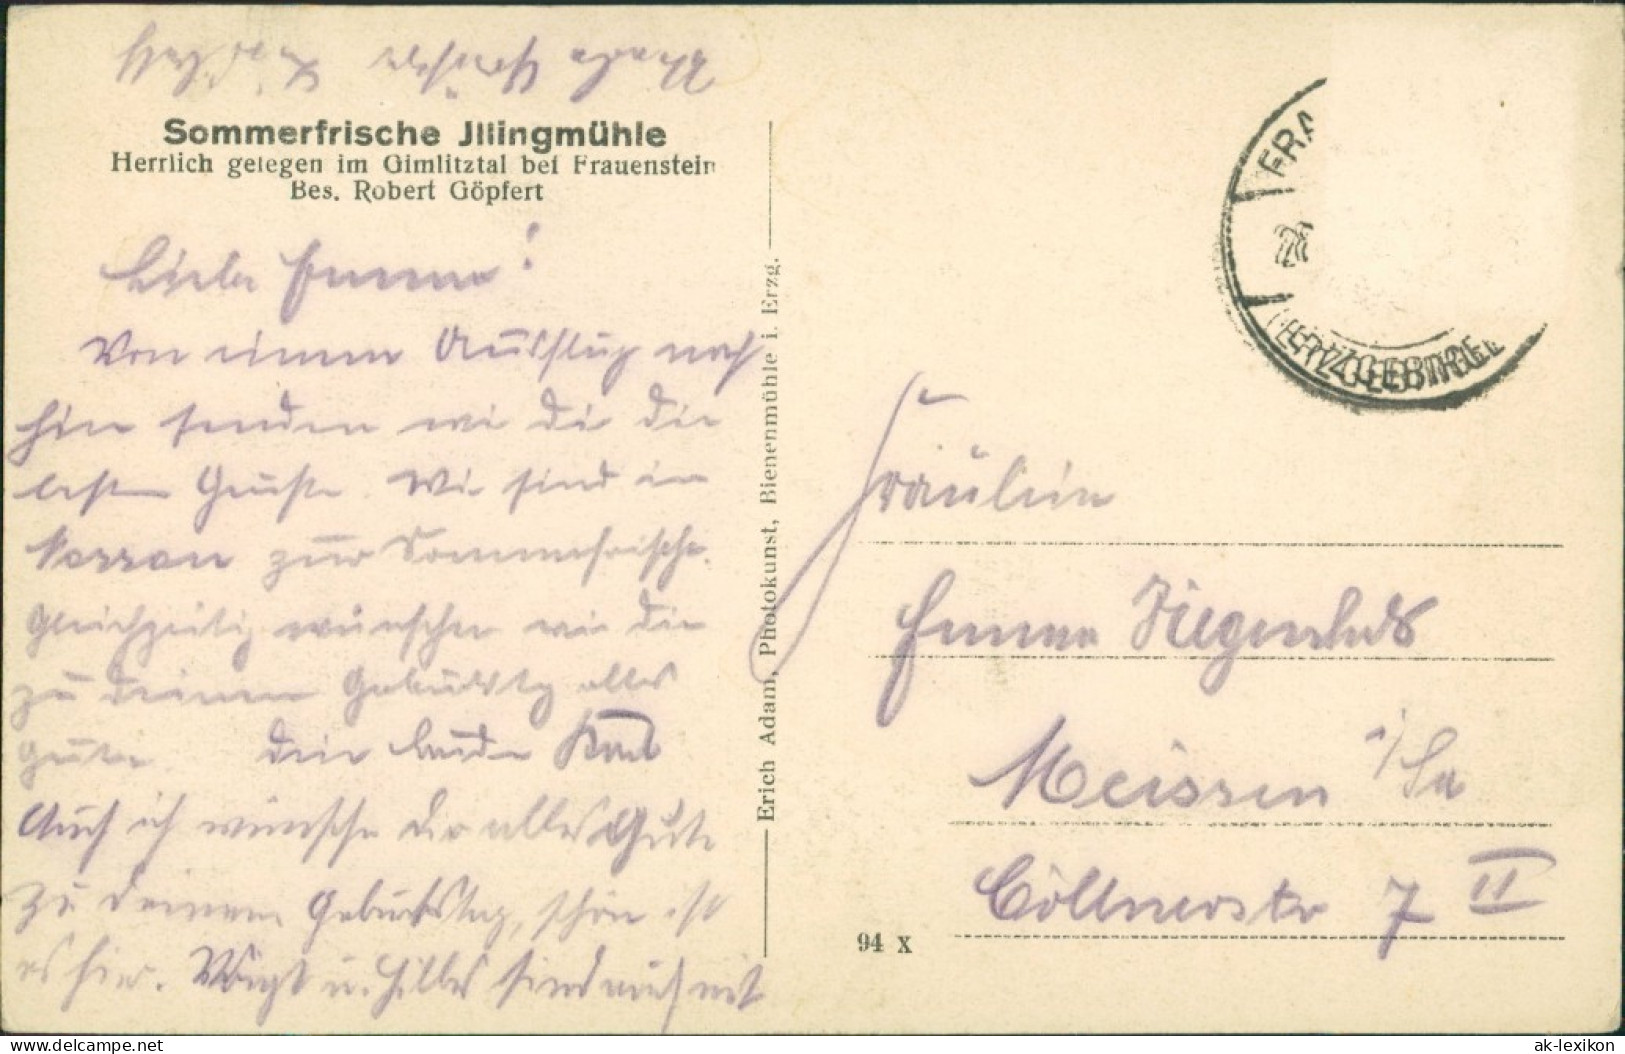 Sommerfrische Jllingmühle
Herrlich gelegen im Gimlitztal bei Frauenstein
Bes. Robert Göpfert
Liebe Emma!
Von einem Ausflug nach
hier senden wir dir die
besten Grüße. Wir sind in
Nassau zur Sommerfrische.
Gleichzeitig wünschen wir dir
zu deinem Geburtstag alles
Gute. Die beiden
Auch ich wünsche dir alles Gute
zu deinem Geburtstag, schön ist
es hier. Voigt u. Hilles sind auch mit
Erich Adam, Photokunst, Bienenmühle i. Erzg.
FRA
ERZGEBIRGE
Fräulein
Emma
Meissen i/Sa
Cöllnerstr 7 II
94 X
delcampe.net
ak-lexikon